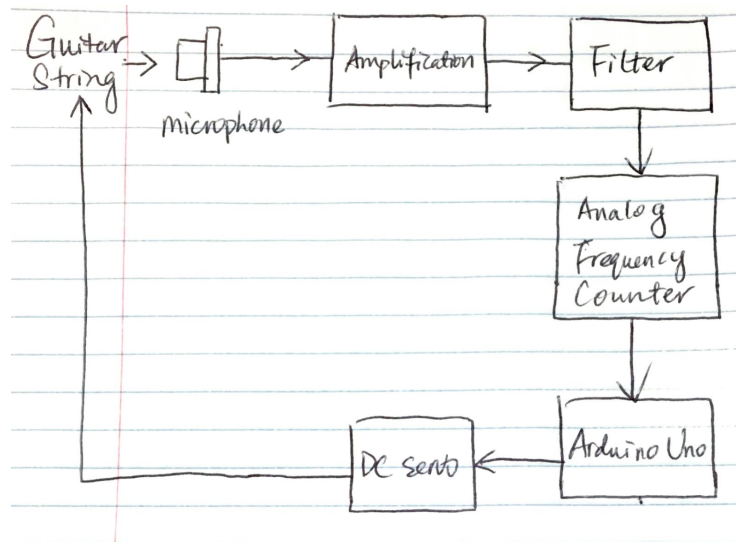 Guitar
String
microphone
Amplification
Filter
Analog
Frequency
Counter
Arduino Uno
DC servo